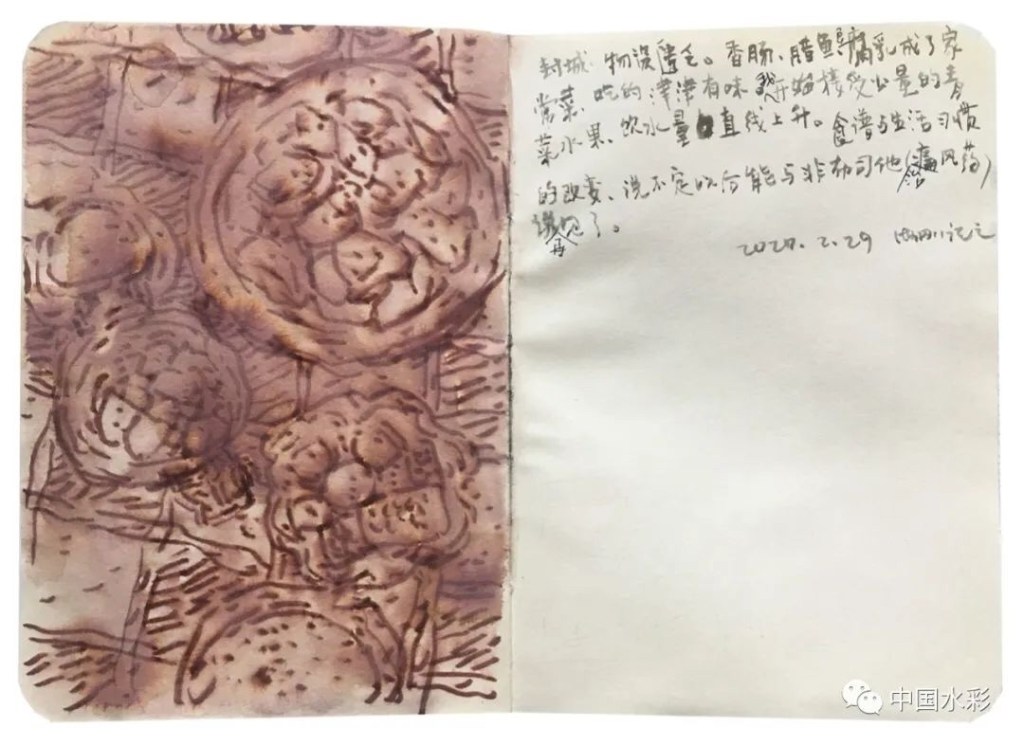 封城、物资匮乏。香肠、腊鱼、腐乳成了家
常菜、吃的津津有味 我开始接受少量的青
菜水果、饮水量直线上升。食谱与生活习惯
的改变、说不定以后能与非布司他(痛风药)
说再见了。
2020.2.29 记之
中国水彩